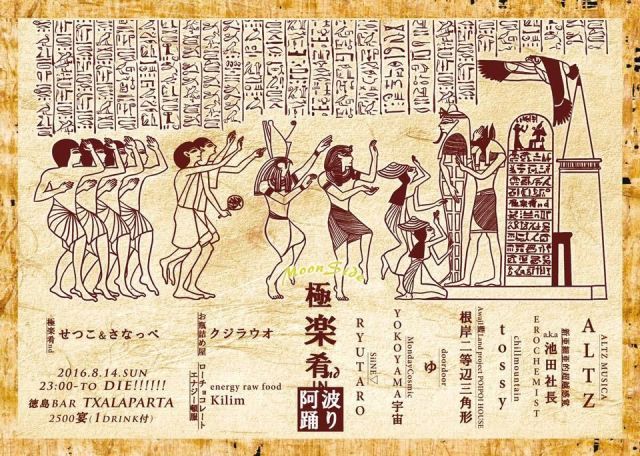 Moon Side
極楽肴nd
IN
阿波踊り
ALTZ MUSICA
ALTZ
EROCHEMIST
a.k.a
池田社長
chillmountain
tossy
Awaji島Land project POIPOI HOUSE
根岸二等辺三角形
doordoor
ゆ
MondayCosmic
YOKOYAMA宇宙
SiiNE△
RYUTARO
極楽肴nd
せつこ&さなっぺ
お瓶詰め屋
クジラウオ
ローチョコレート
エナジー頓服
energy raw food
Kilim
2016.8.14.SUN
23:00-TO DIE!!!!!!
徳島BAR TXALAPARTA
2500宴(1DRINK付)